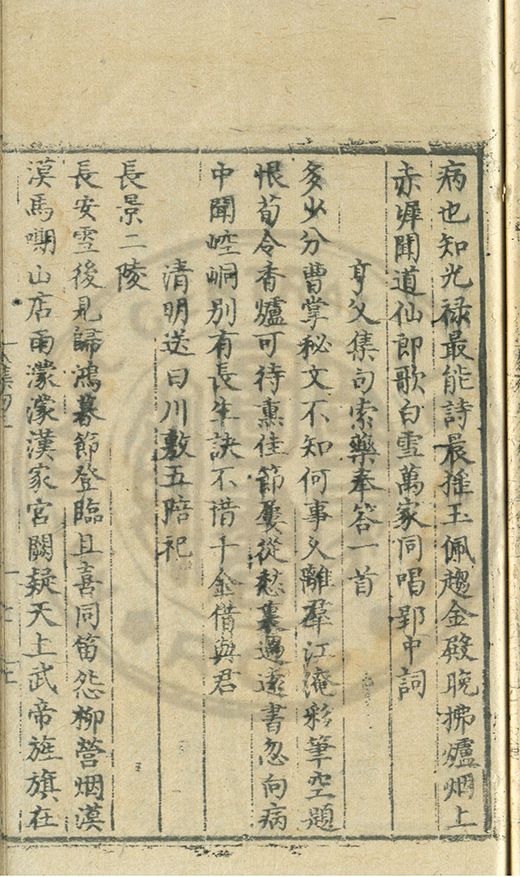 病也知光祿最能詩最搖玉佩趨金殿晚拂爐烟上
赤墀聞道仙郎歌白雪萬家同唱郢中詞
亨父集句索藥奉答一首
多少分曹掌秘文不知何事久離群江淹彩筆空題
恨荀令香爐可待熏佳節屢從愁裏過遠書忽向病
中聞崆峒別有長生訣不惜千金借與君
清明送曰川敷五陪祀
長景二陵
長安雪後見歸鴻暮節登臨且喜同笛怨柳營烟漠
漠馬嘶山店雨濛濛漢家宮闕疑天上武帝旌旗在